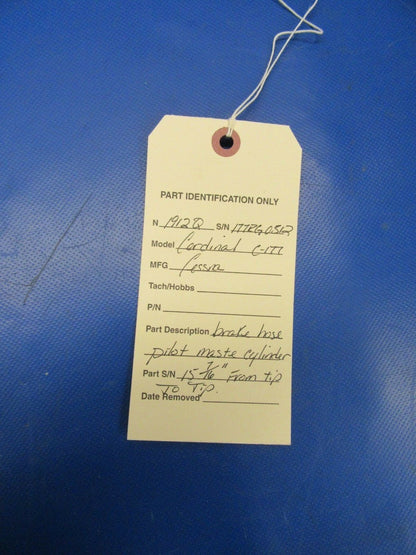 PART IDENTIFICATION ONLY
N 1912Q S/N 177RG0562
Model Cardinal C-177
MFG Cessna
Tach/Hobbs
P/N
Part Description brake hose
pilot maste cylinder
Part S/N 15 7/16" From tip
To Tip.
Date Removed